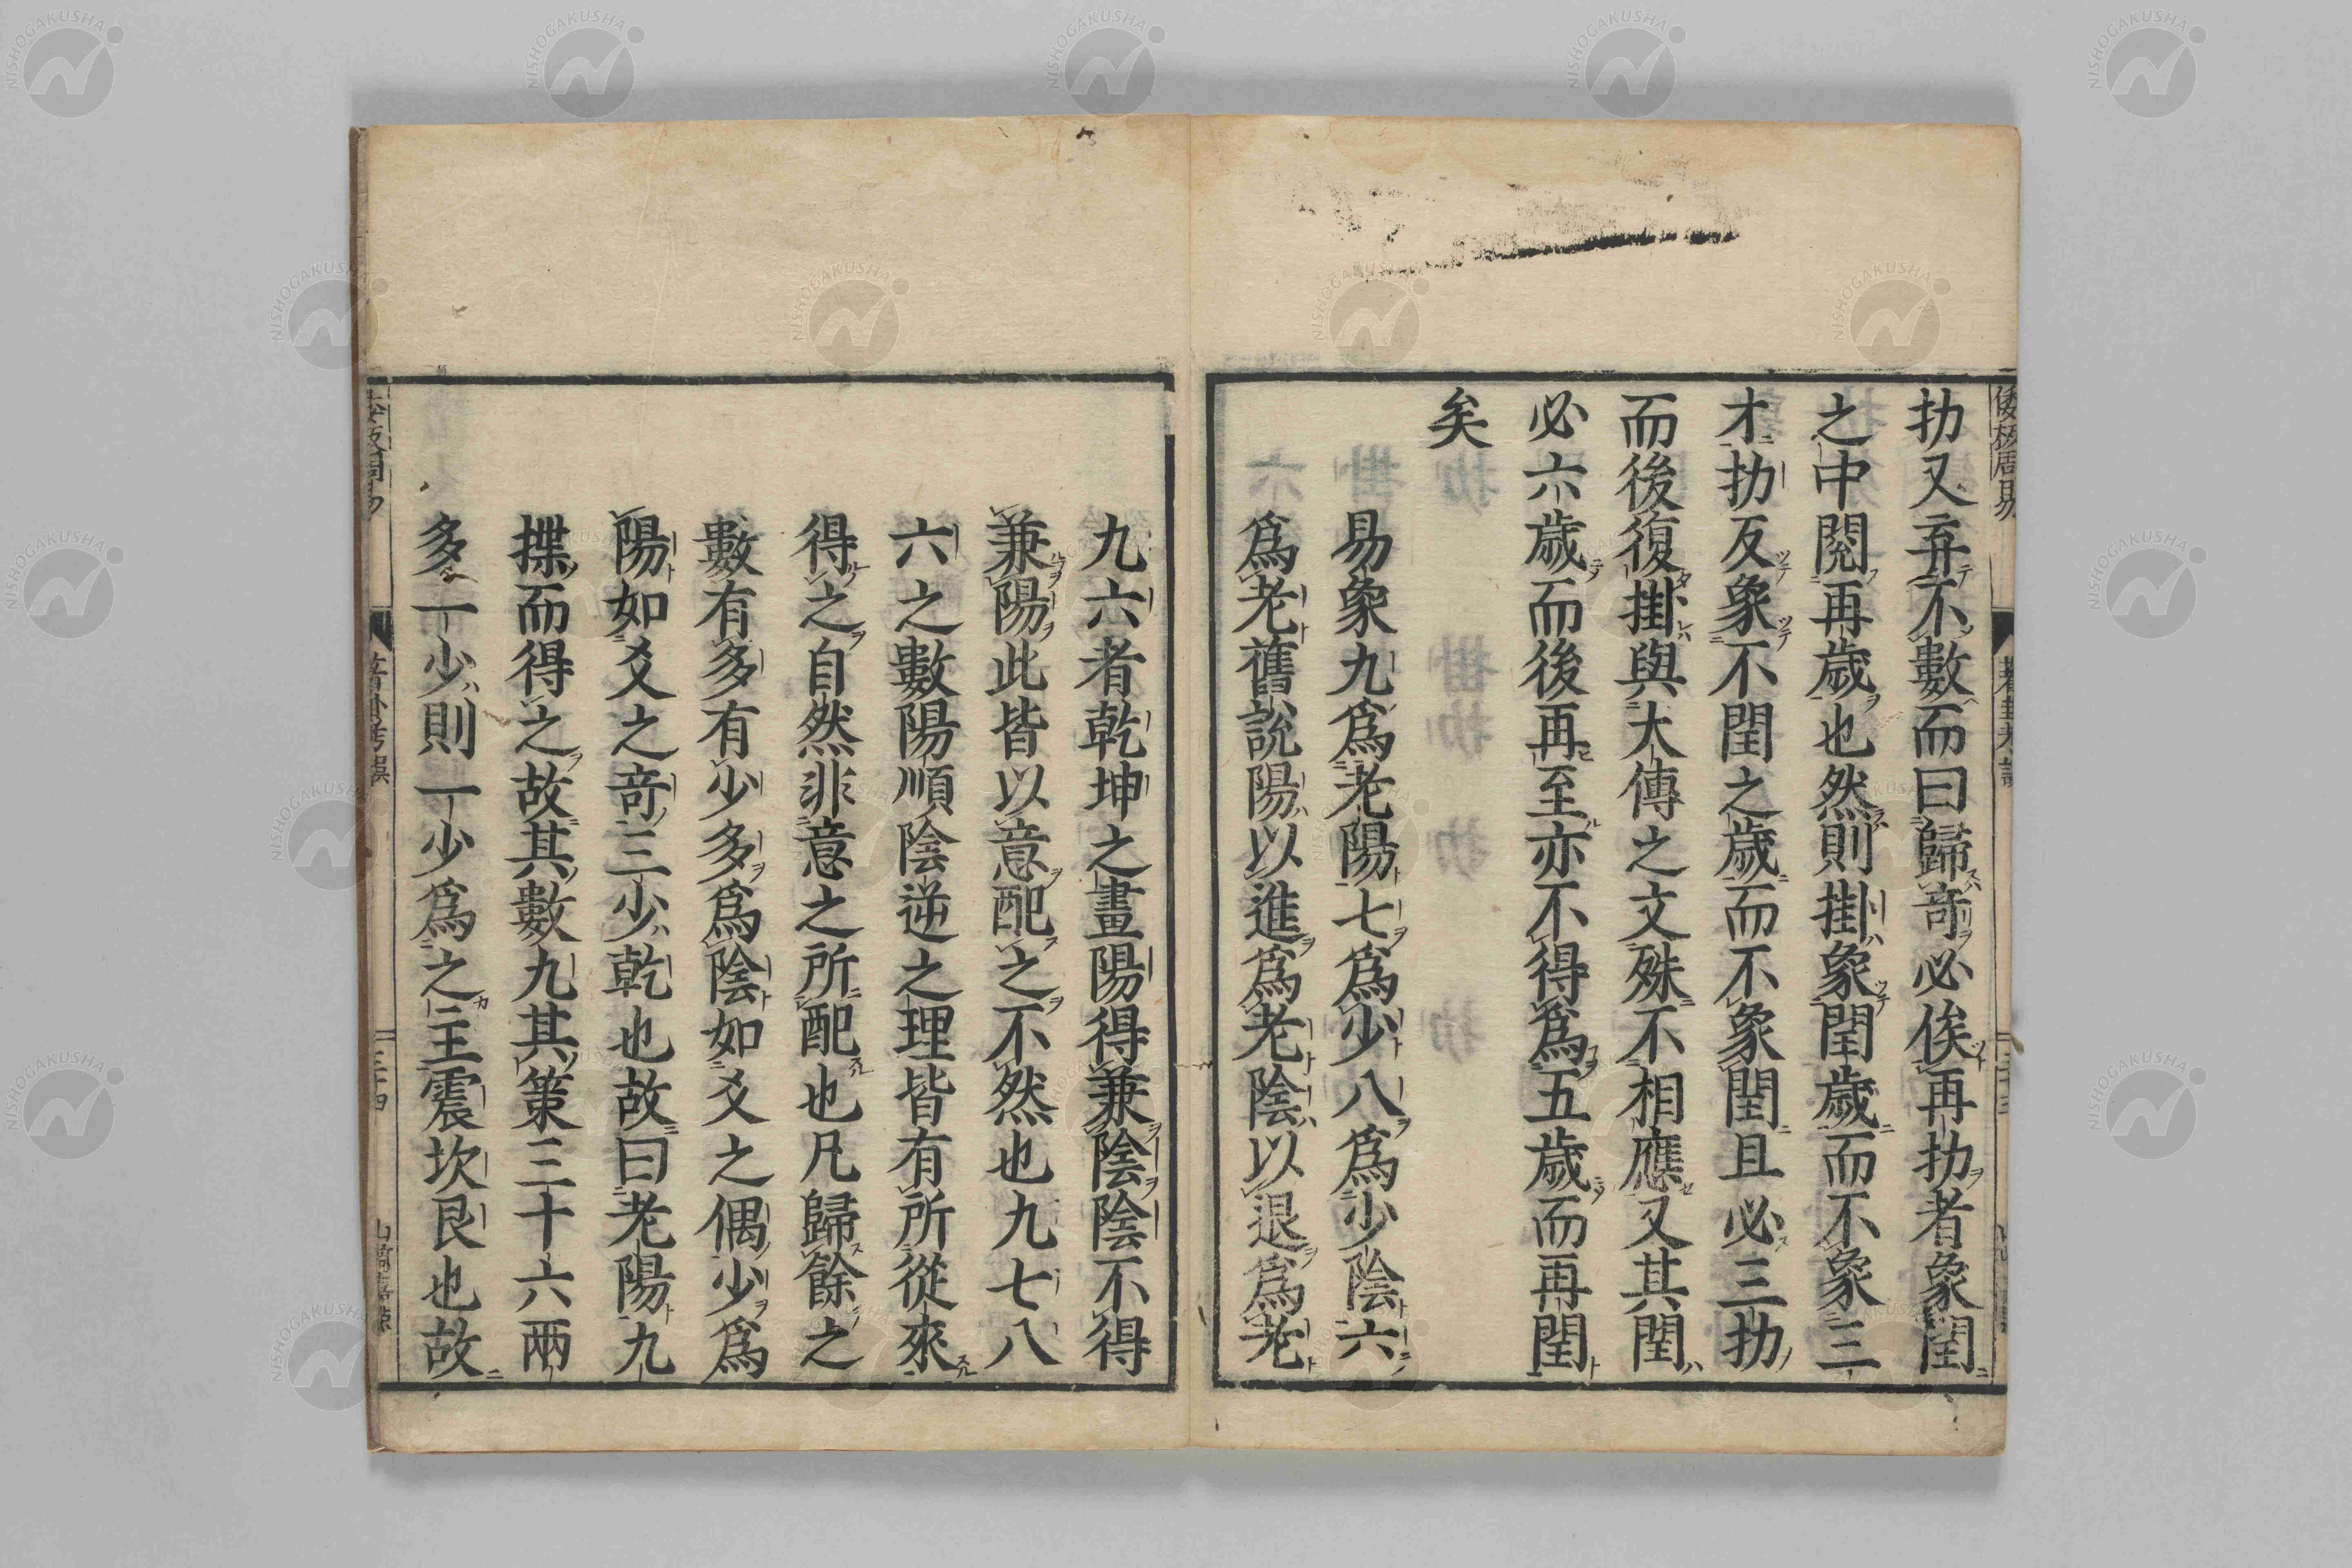 扐又弃不數而曰歸奇必俟再扐者象閏
之中閱再歲也然則掛象閏歲而不象三
才扐反象不閏之歲而不象閏且必三扐
而後復掛與大傳之文殊不相應又其閏
必六歲而後再至亦不得爲五歲而再閏
矣
易象九爲老陽七爲少八爲少陰六
爲老舊說陽以進爲老陰以退爲老
九六者乾坤之畫陽得兼陰陰不得
兼陽此皆以意配之不然也九七八
六之數陽順陰逆之理皆有所從來
得之自然非意之所配也凡歸餘之
數有多有少多爲陰如爻之偶少爲
陽如爻之奇三少乾也故曰老陽九
揲而得之故其數九其策三十六兩
多一少則一少爲之主震坎艮也故
倭板周易
蓍卦考誤
三十四
NISHOGAKUSHA